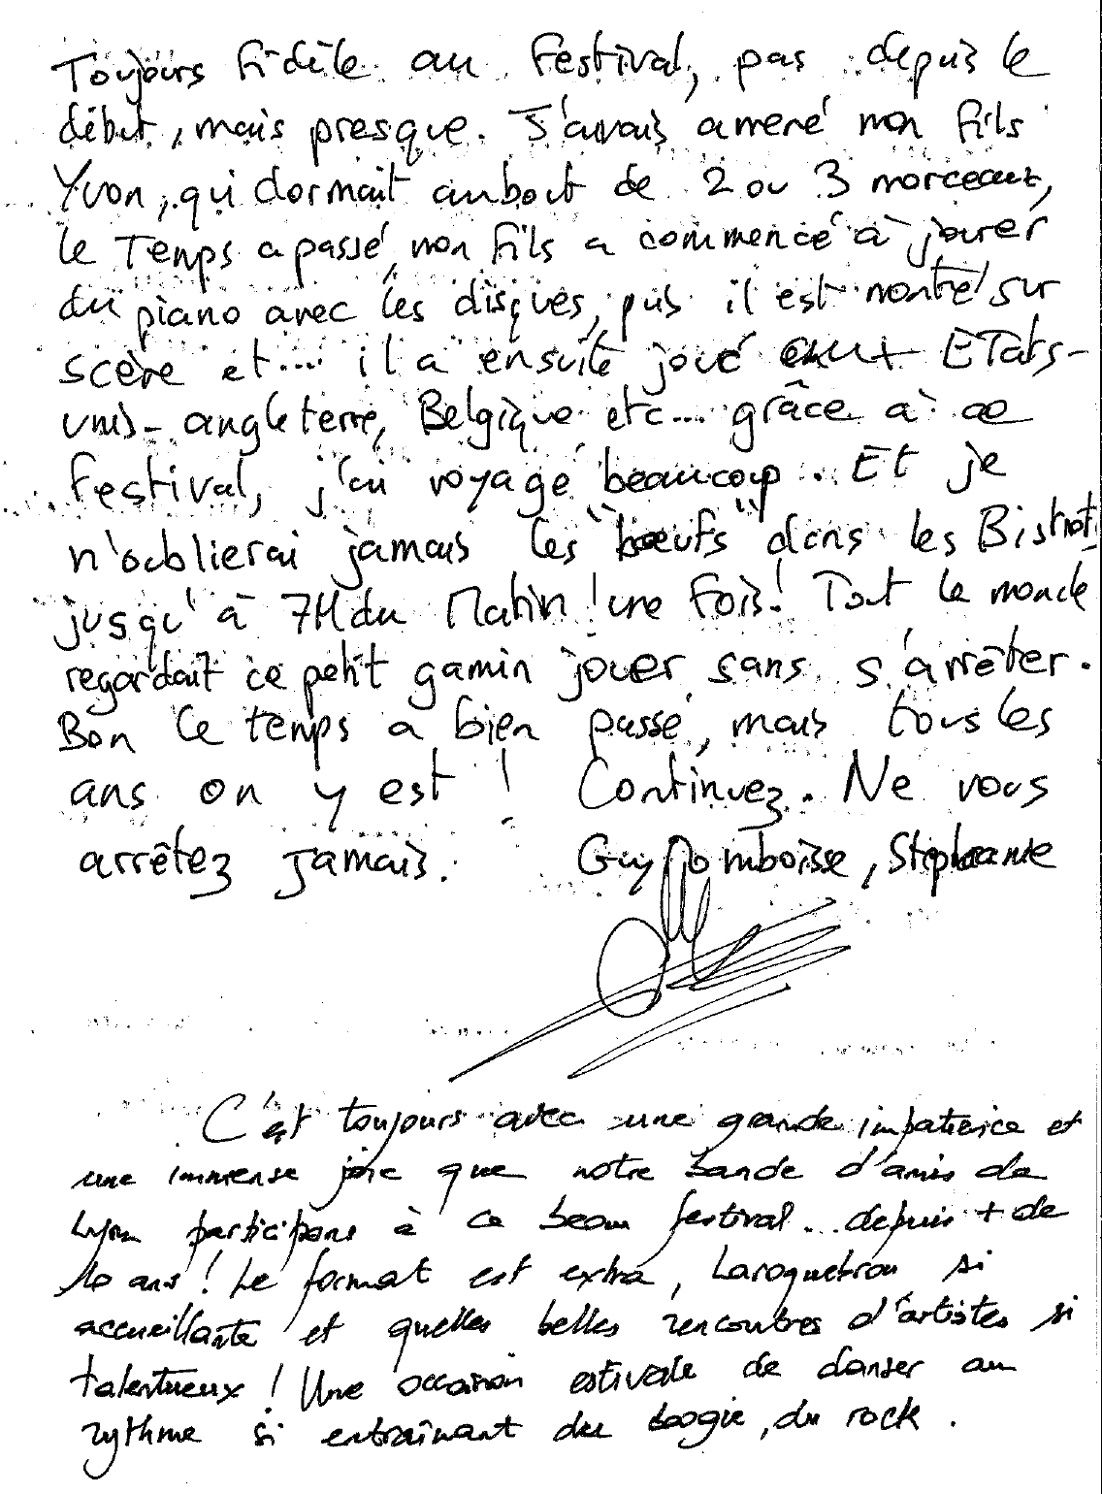 Toujours fidèle au Festival, pas depuis le
début, mais presque. J'avais amené mon fils
Yvon, qui dormait au bout de 2 ou 3 morceaux,
le Temps a passé, mon fils a commencé à jouer
du piano avec les disques, puis il est monté sur
scène et... il a ensuite joué aux Etats-
unis - angleterre, Belgique etc... grâce à ce
Festival, j'ai voyagé beaucoup. Et je
n'oublierai jamais les "bœufs" dans les Bistrots
jusqu'à 7H du Matin ! une fois ! Tout le monde
regardait ce petit gamin jouer sans s'arrêter.
Bon le temps a bien passé, mais tous les
ans on y est ! Continuez. Ne vous
arrêtez jamais. Guy , Stéphanie
C'est toujours avec une grande impatience et
une immense joie que notre bande d'amis de
Lyon participons à ce beau festival... depuis + de
10 ans ! Le format est extra, Laroquebrou si
accueillante et quelles belles rencontres d'artistes si
talentueux ! Une occasion estivale de danser au
rythme si entraînant du boogie, du rock.